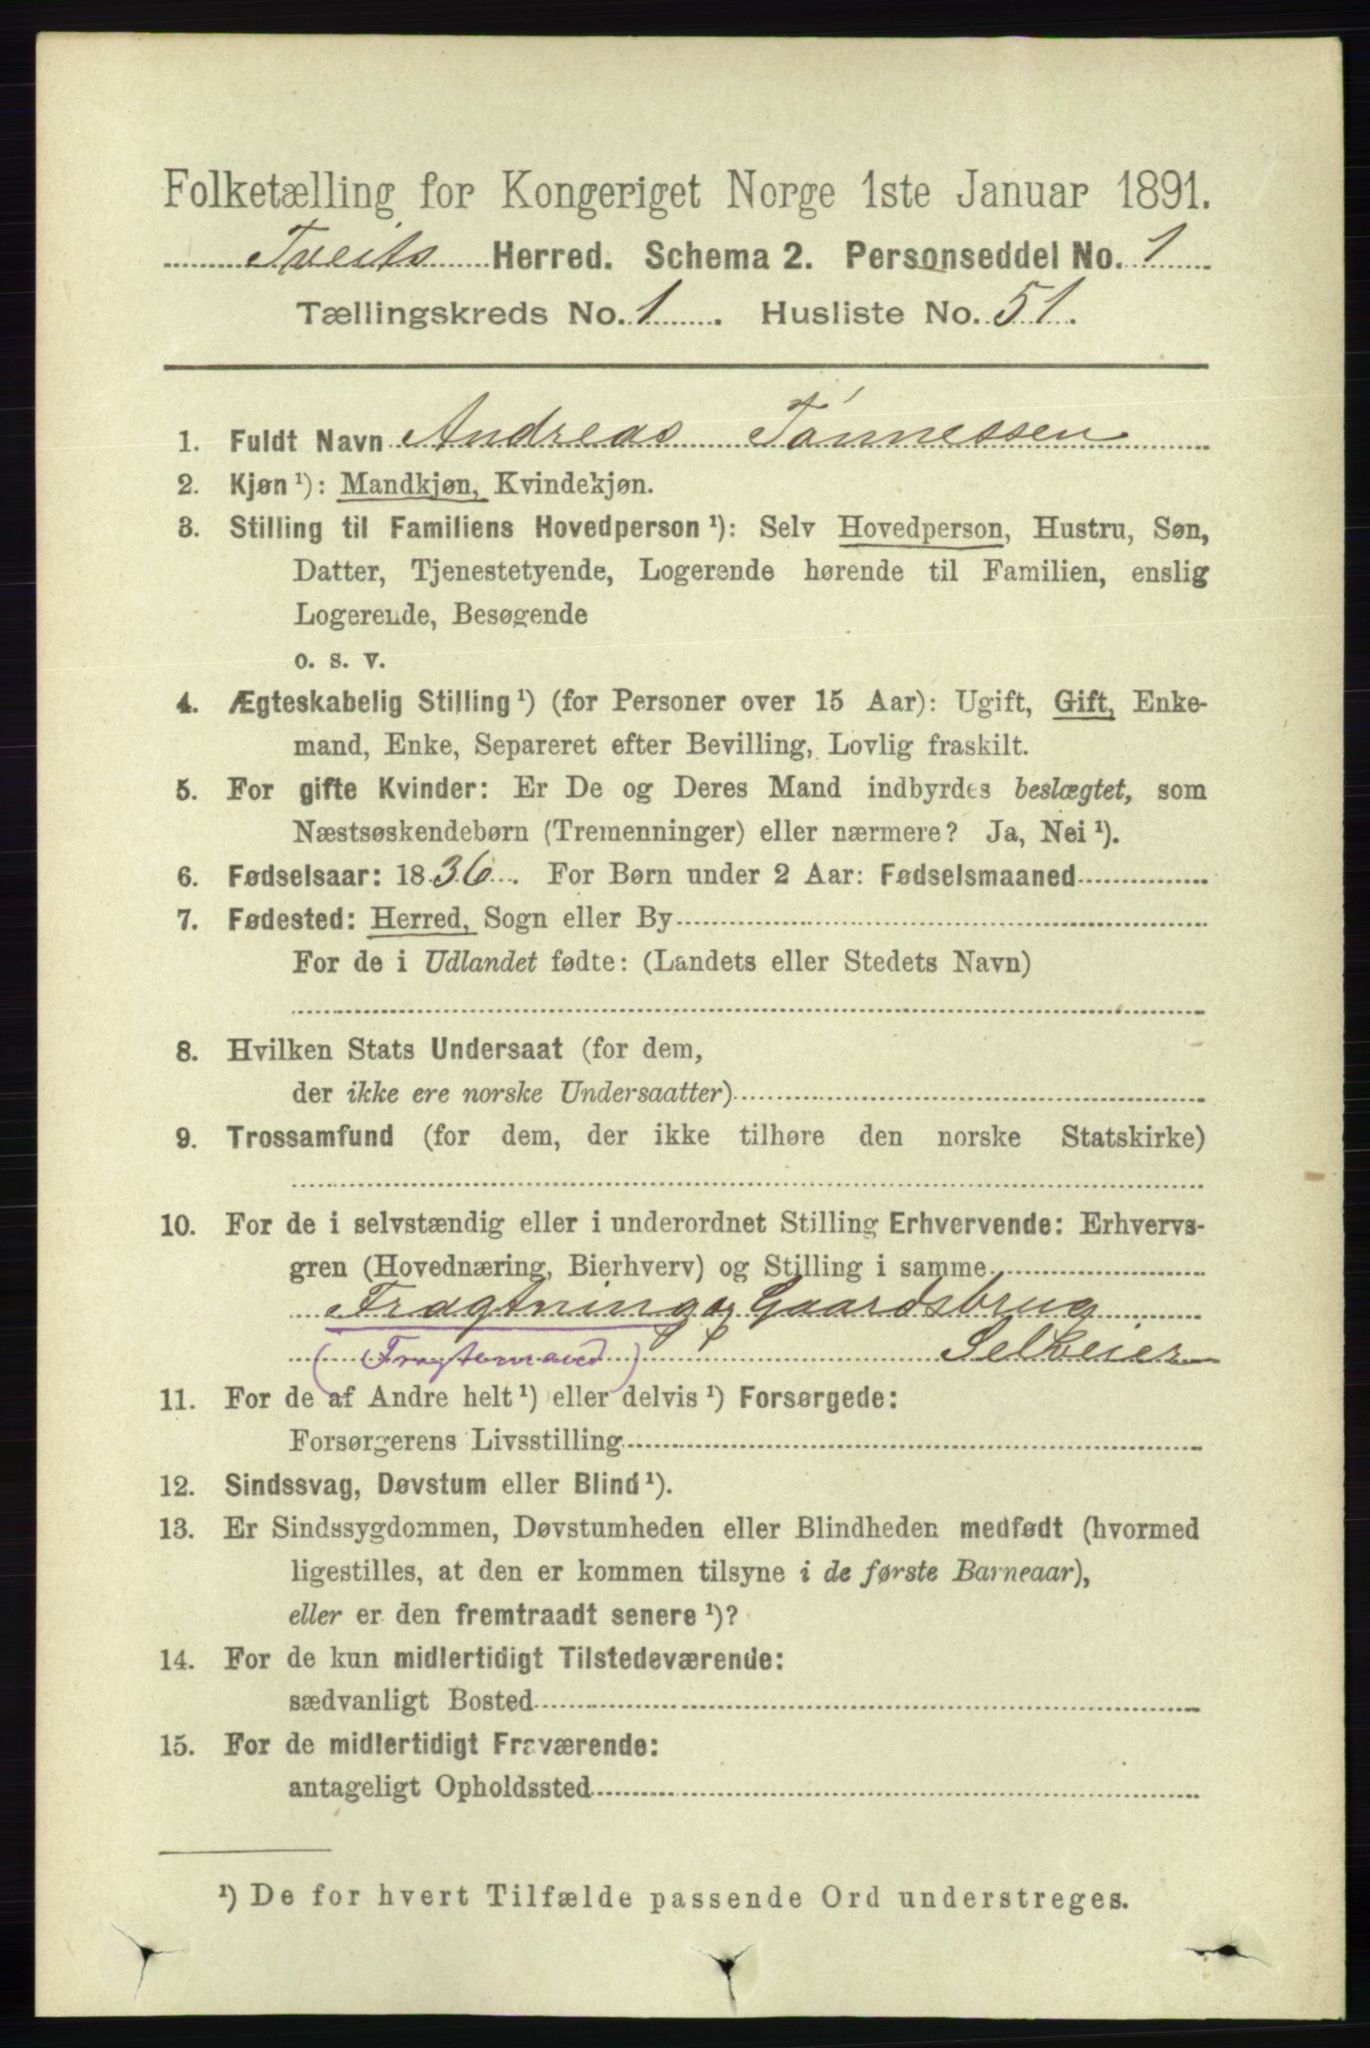 Folketælling for Kongeriget Norge 1ste Januar 1891.
Tveits Herred. Schema 2. Personseddel No. 1
Tællingskreds No. 1. Husliste No. 51.
1. Fuldt Navn Andreas Tónnessen
2. Kjøn ¹): Mandkjøn, Kvindekjøn.
3. Stilling til Familiens Hovedperson ¹): Selv Hovedperson, Hustru, Søn,
Datter, Tjenestetyende, Logerende hørende til Familien, enslig
Logerende, Besøgende
o. s. v.
4. Ægteskabelig Stilling ¹) (for Personer over 15 Aar): Ugift, Gift, Enke-
mand, Enke, Separeret efter Bevilling, Lovlig fraskilt.
5. For gifte Kvinder: Er De og Deres Mand indbyrdes beslægtet, som
Næstsøskendebørn (Tremenninger) eller nærmere? Ja, Nei ¹).
6. Fødselsaar: 1836. For Børn under 2 Aar: Fødselsmaaned
7. Fødested: Herred, Sogn eller By
For de i Udlandet fødte: (Landets eller Stedets Navn)
8. Hvilken Stats Undersaat (for dem,
der ikke ere norske Undersaatter)
9. Trossamfund (for dem, der ikke tilhøre den norske Statskirke)
10. For de i selvstændig eller i underordnet Stilling Erhvervende: Erhvervs-
gren (Hovednæring, Bierhverv) og Stilling i samme
Fragtning og Gaardsbrug
(Fragtemand) Selveier
11. For de af Andre helt ¹) eller delvis ¹) Forsørgede:
Forsørgerens Livsstilling
12. Sindssvag, Døvstum eller Blind ¹).
13. Er Sindssygdommen, Døvstumheden eller Blindheden medfødt (hvormed
ligestilles, at den er kommen tilsyne i de første Barneaar),
eller er den fremtraadt senere ¹)?
14. For de kun midlertidigt Tilstedeværende:
sædvanligt Bosted
15. For de midlertidigt Fraværende:
antageligt Opholdssted
¹) De for hvert Tilfælde passende Ord understreges.